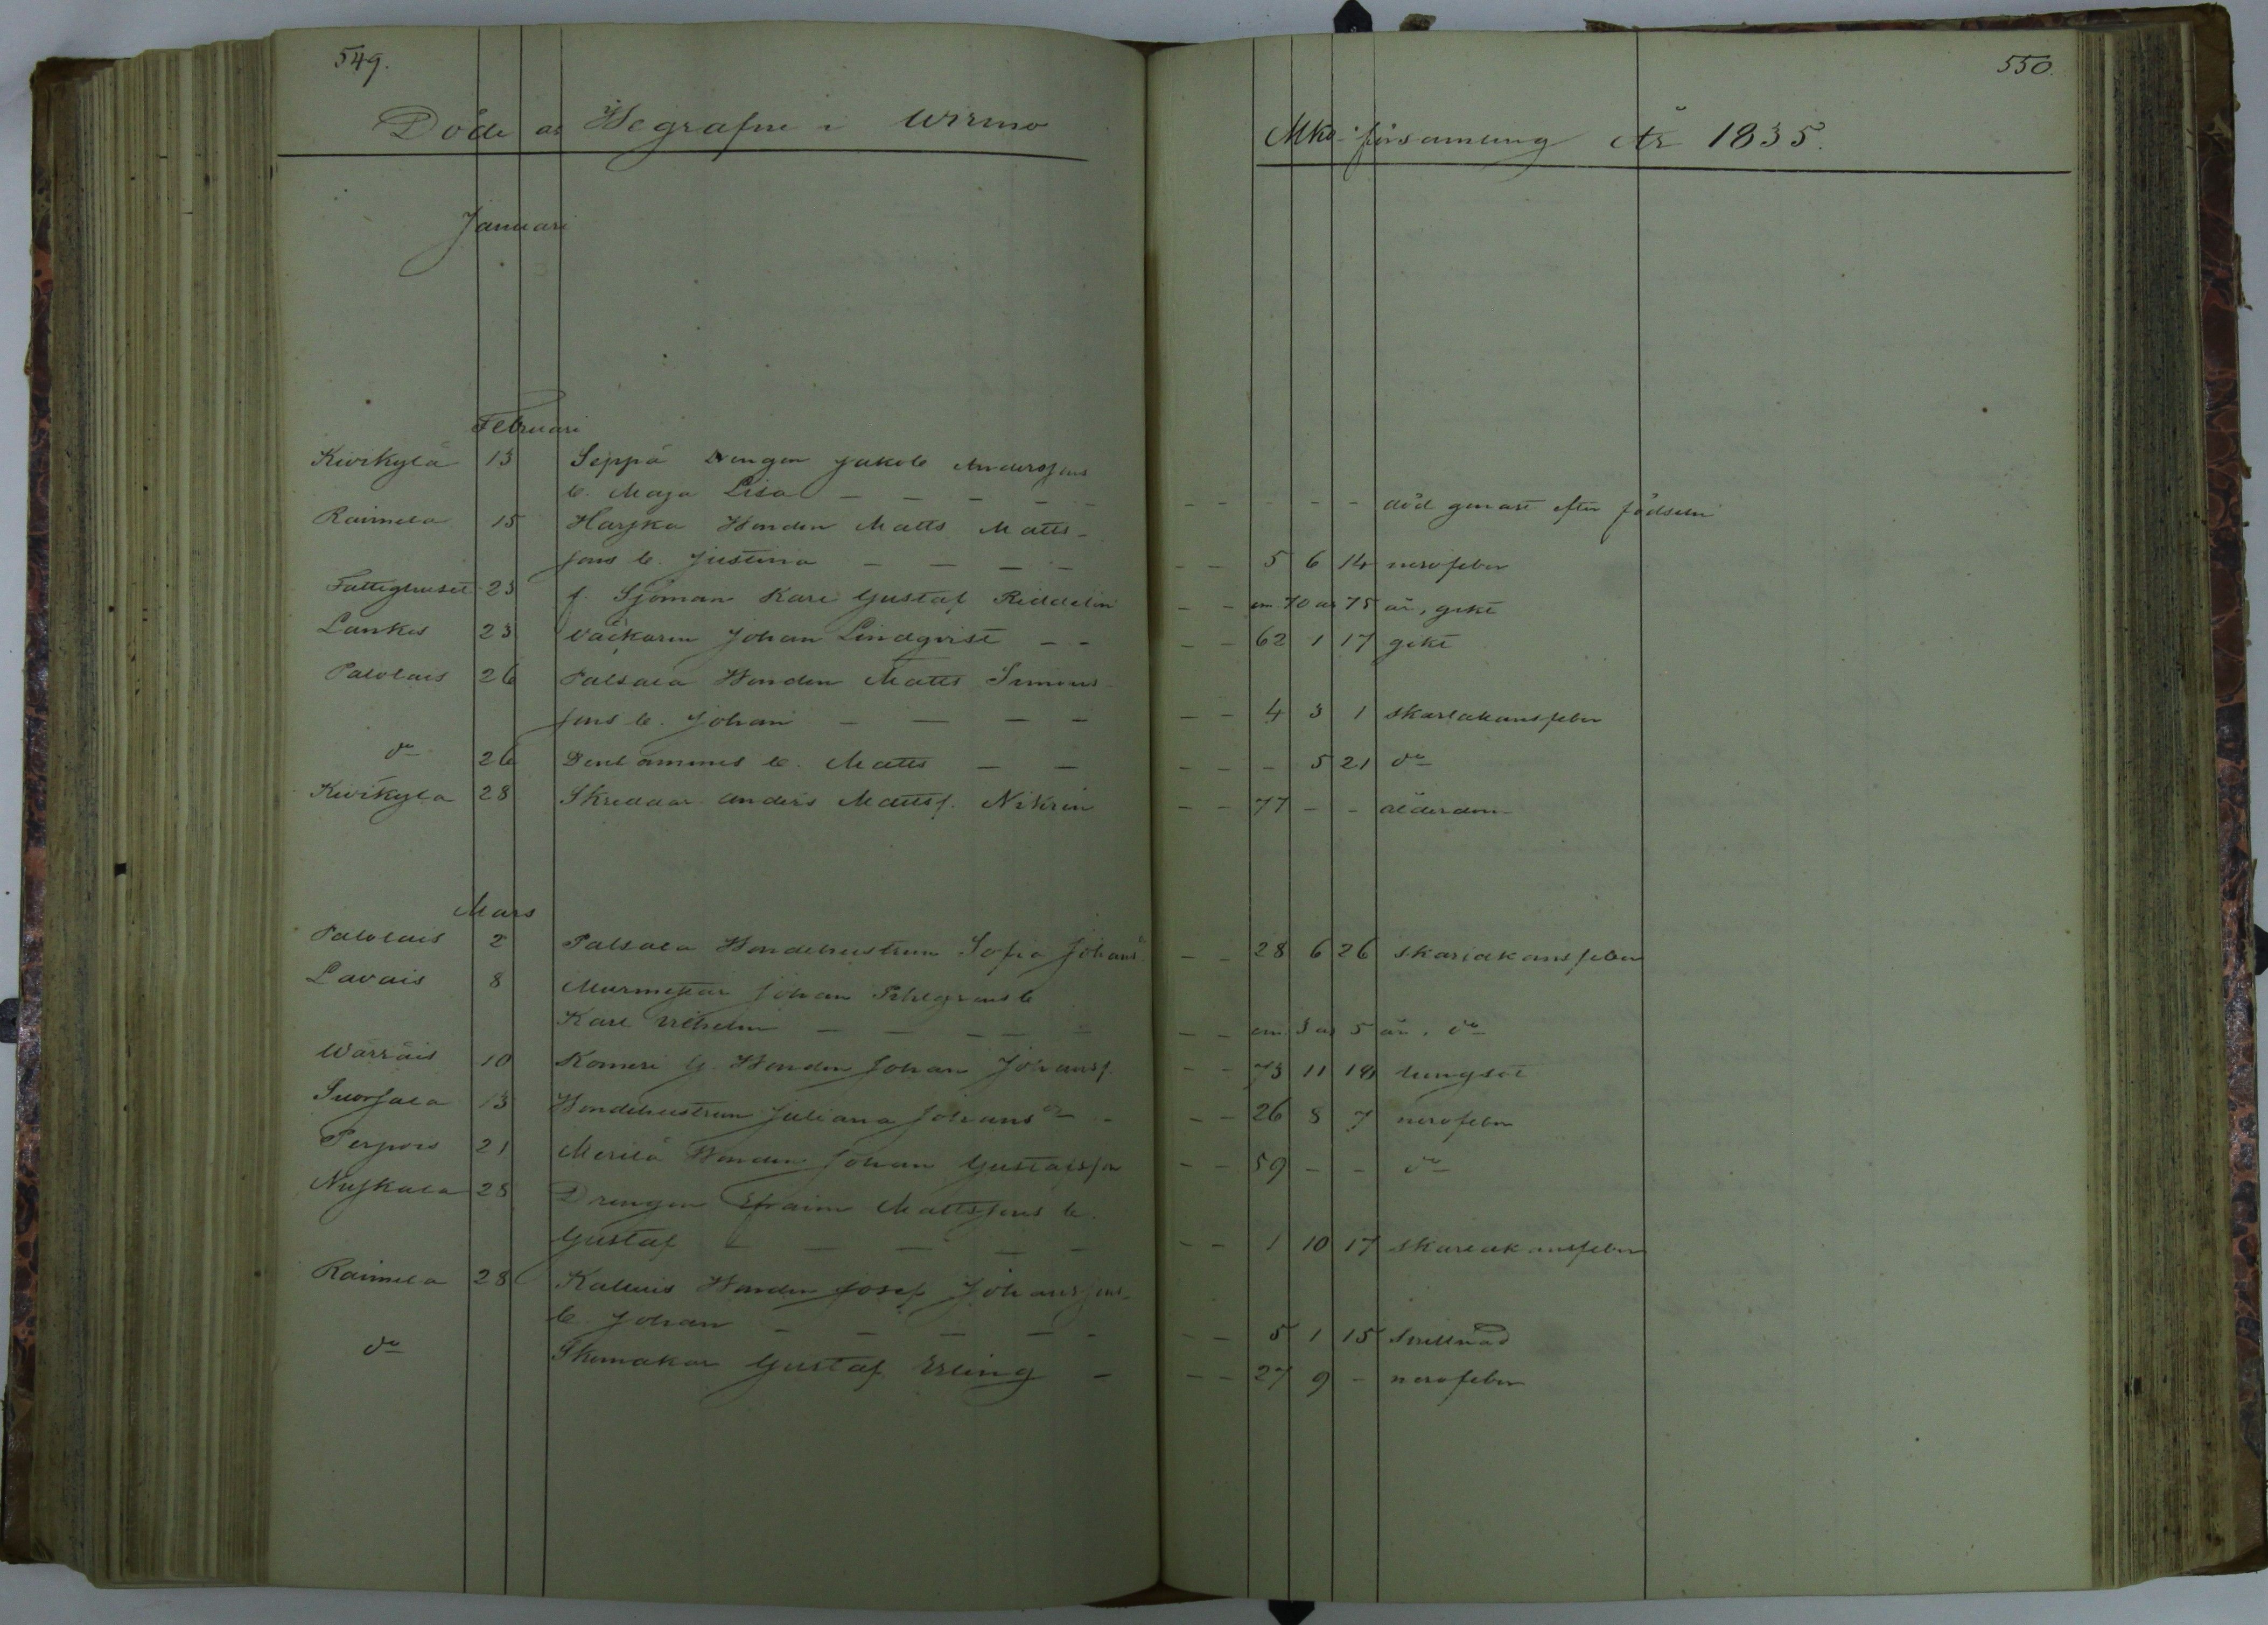 549.
550.
Döde o: Begrafne i Wirmo
Mko-församling År 1835.
Januari
Februari
Kivikylä 13 Seppä Drengen Jakob Anderssons
b. Maja Lisa - - - - död genast efter födseln
Raimela 15 Harjka Bonden Matts Matts-
sons b. Justina - - - - 5 6 14 nervfeber
Fattighuset 23 f. Sjöman Karl Gustaf Riddelin - - em. 70 o: 75 år, gikt
Lankis 23 Väckaren Johan Lindqvist - - 62 1 17 gikt
Palolais 26 Palsala Bonden Matts Simons-
sons b. Johan - - - - 4 3 1 skarlakansfeber
do 26 Dens ammes b. Matts - - - 5 21 do
Kivikylä 28 Skreddar Anders Mattss. Nikrin - - 77 - - ålderdom
Mars
Palolais 2 Palsala Bondehustrun Sofia Johansdr - - 28 6 26 skarlakansfeber
Lavais 8 Murmestar Johan Pihlgrens b
Karl Vilhelm - - - - em. 3 o: 5 år. do
Wärräis 10 Komeri G. Bonden Johan Johanss. - - 73 11 18 lungsot
Suorsala 13 Bondehustrun Juliana Johansdr - - 26 8 7 nervfeber
Perpois 21 Merilä Bonden Johan Gustafsson - - 59 - - do
Nuskala 28 Drengen Efraim Mattssons b.
Gustaf - - - - 1 10 17 skarlakansfeber
Raimela 28 Kalluis Bonden Josef Johanssons
b. Johan - - - - 5 1 15 Svullnad
do Skomakar Gustaf Erling - - - 27 9 - nervfeber